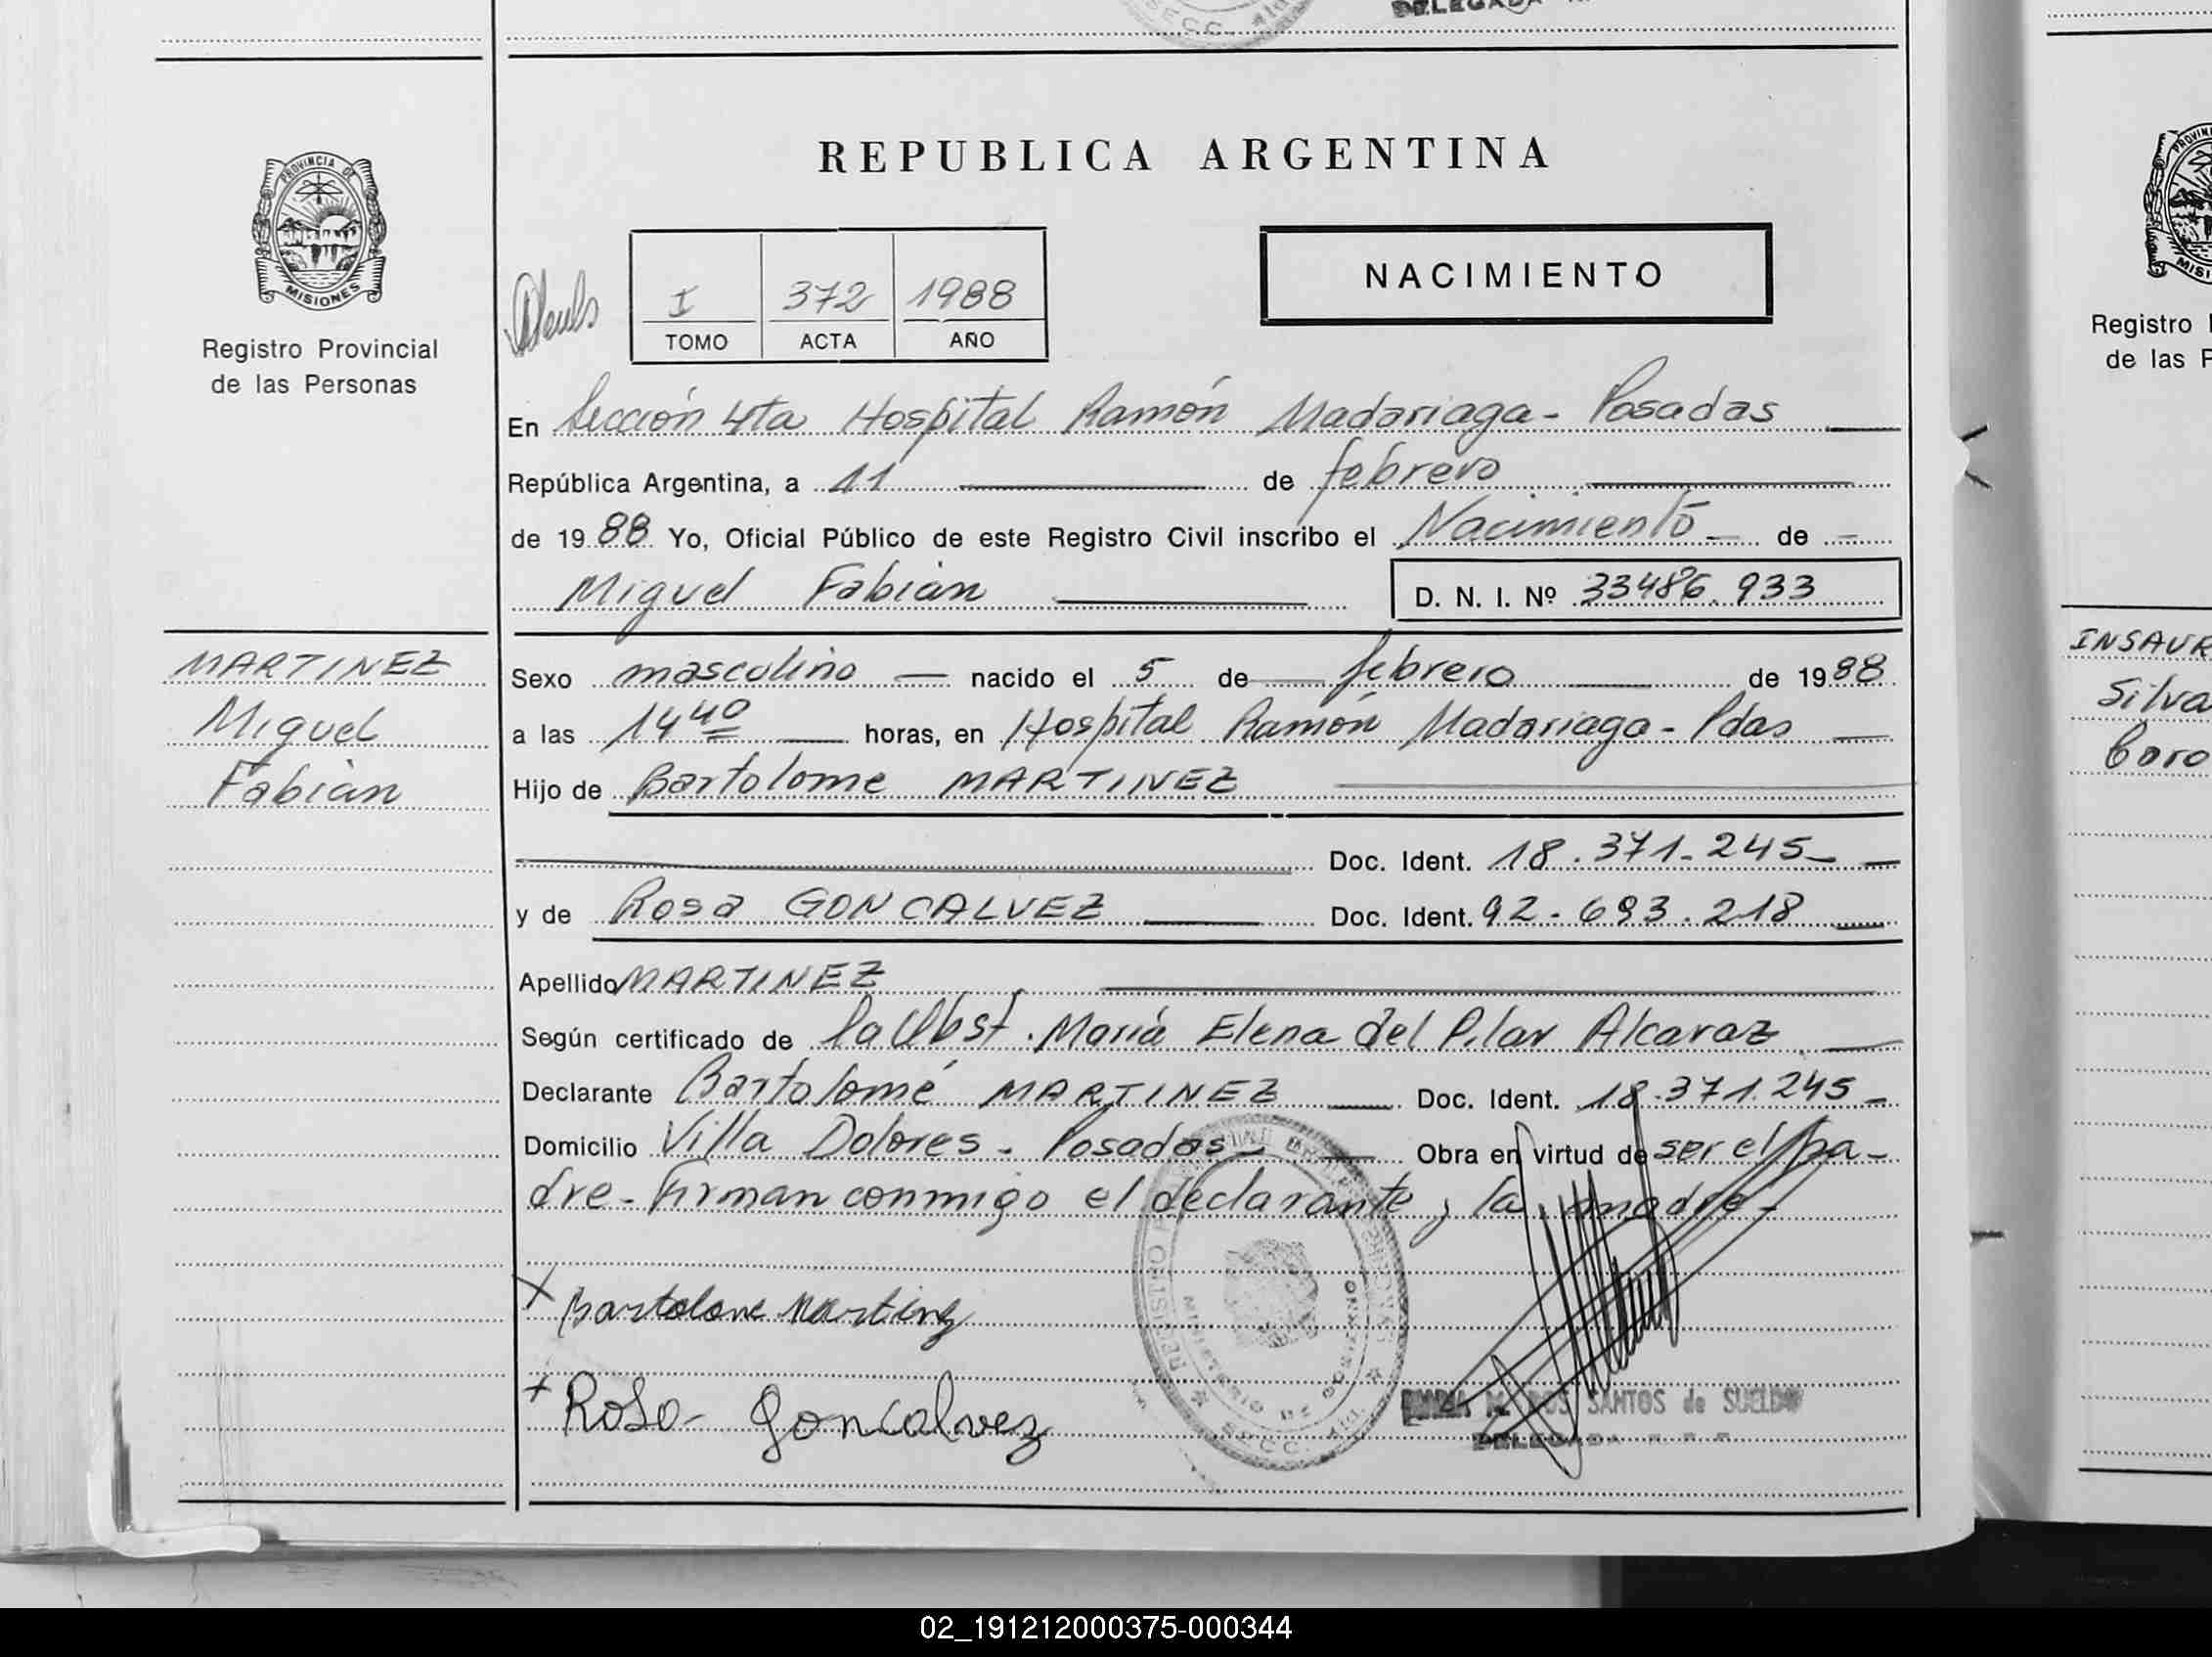 SECC. 4ta
DELEGADA
REPUBLICA ARGENTINA
PROVINCIA DE
MISIONES
Registro Provincial
de las Personas
NACIMIENTO
I 372 1988
TOMO ACTA AÑO
En Sección 4ta Hospital Ramón Madariaga - Posadas
República Argentina, a 11 de febrero
de 1988 Yo, Oficial Público de este Registro Civil inscribo el Nacimiento de
Miguel Fabián D. N. I. Nº 33486.933
MARTINEZ
Miguel
Fabián
Sexo masculino nacido el 5 de febrero de 1988
a las 14 40 horas, en Hospital Ramón Madariaga - Pdas
Hijo de Bartolome MARTINEZ
Doc. Ident. 18.371.245
y de Rosa GONCALVEZ Doc. Ident. 92.693.218
Apellido MARTINEZ
Según certificado de la Obst. María Elena del Pilar Alcaraz
Declarante Bartolomé MARTINEZ Doc. Ident. 18.371.245
Domicilio Villa Dolores - Posadas Obra en virtud de ser el pa-
dre - Firman conmigo el declarante y la madre -
x Bartolome Martinez
x Rosa Goncalvez
DOS SANTOS de SUELDO
DELEGADA
Registro
de las P
INSAUR
Silva
Caro
02_191212000375-000344